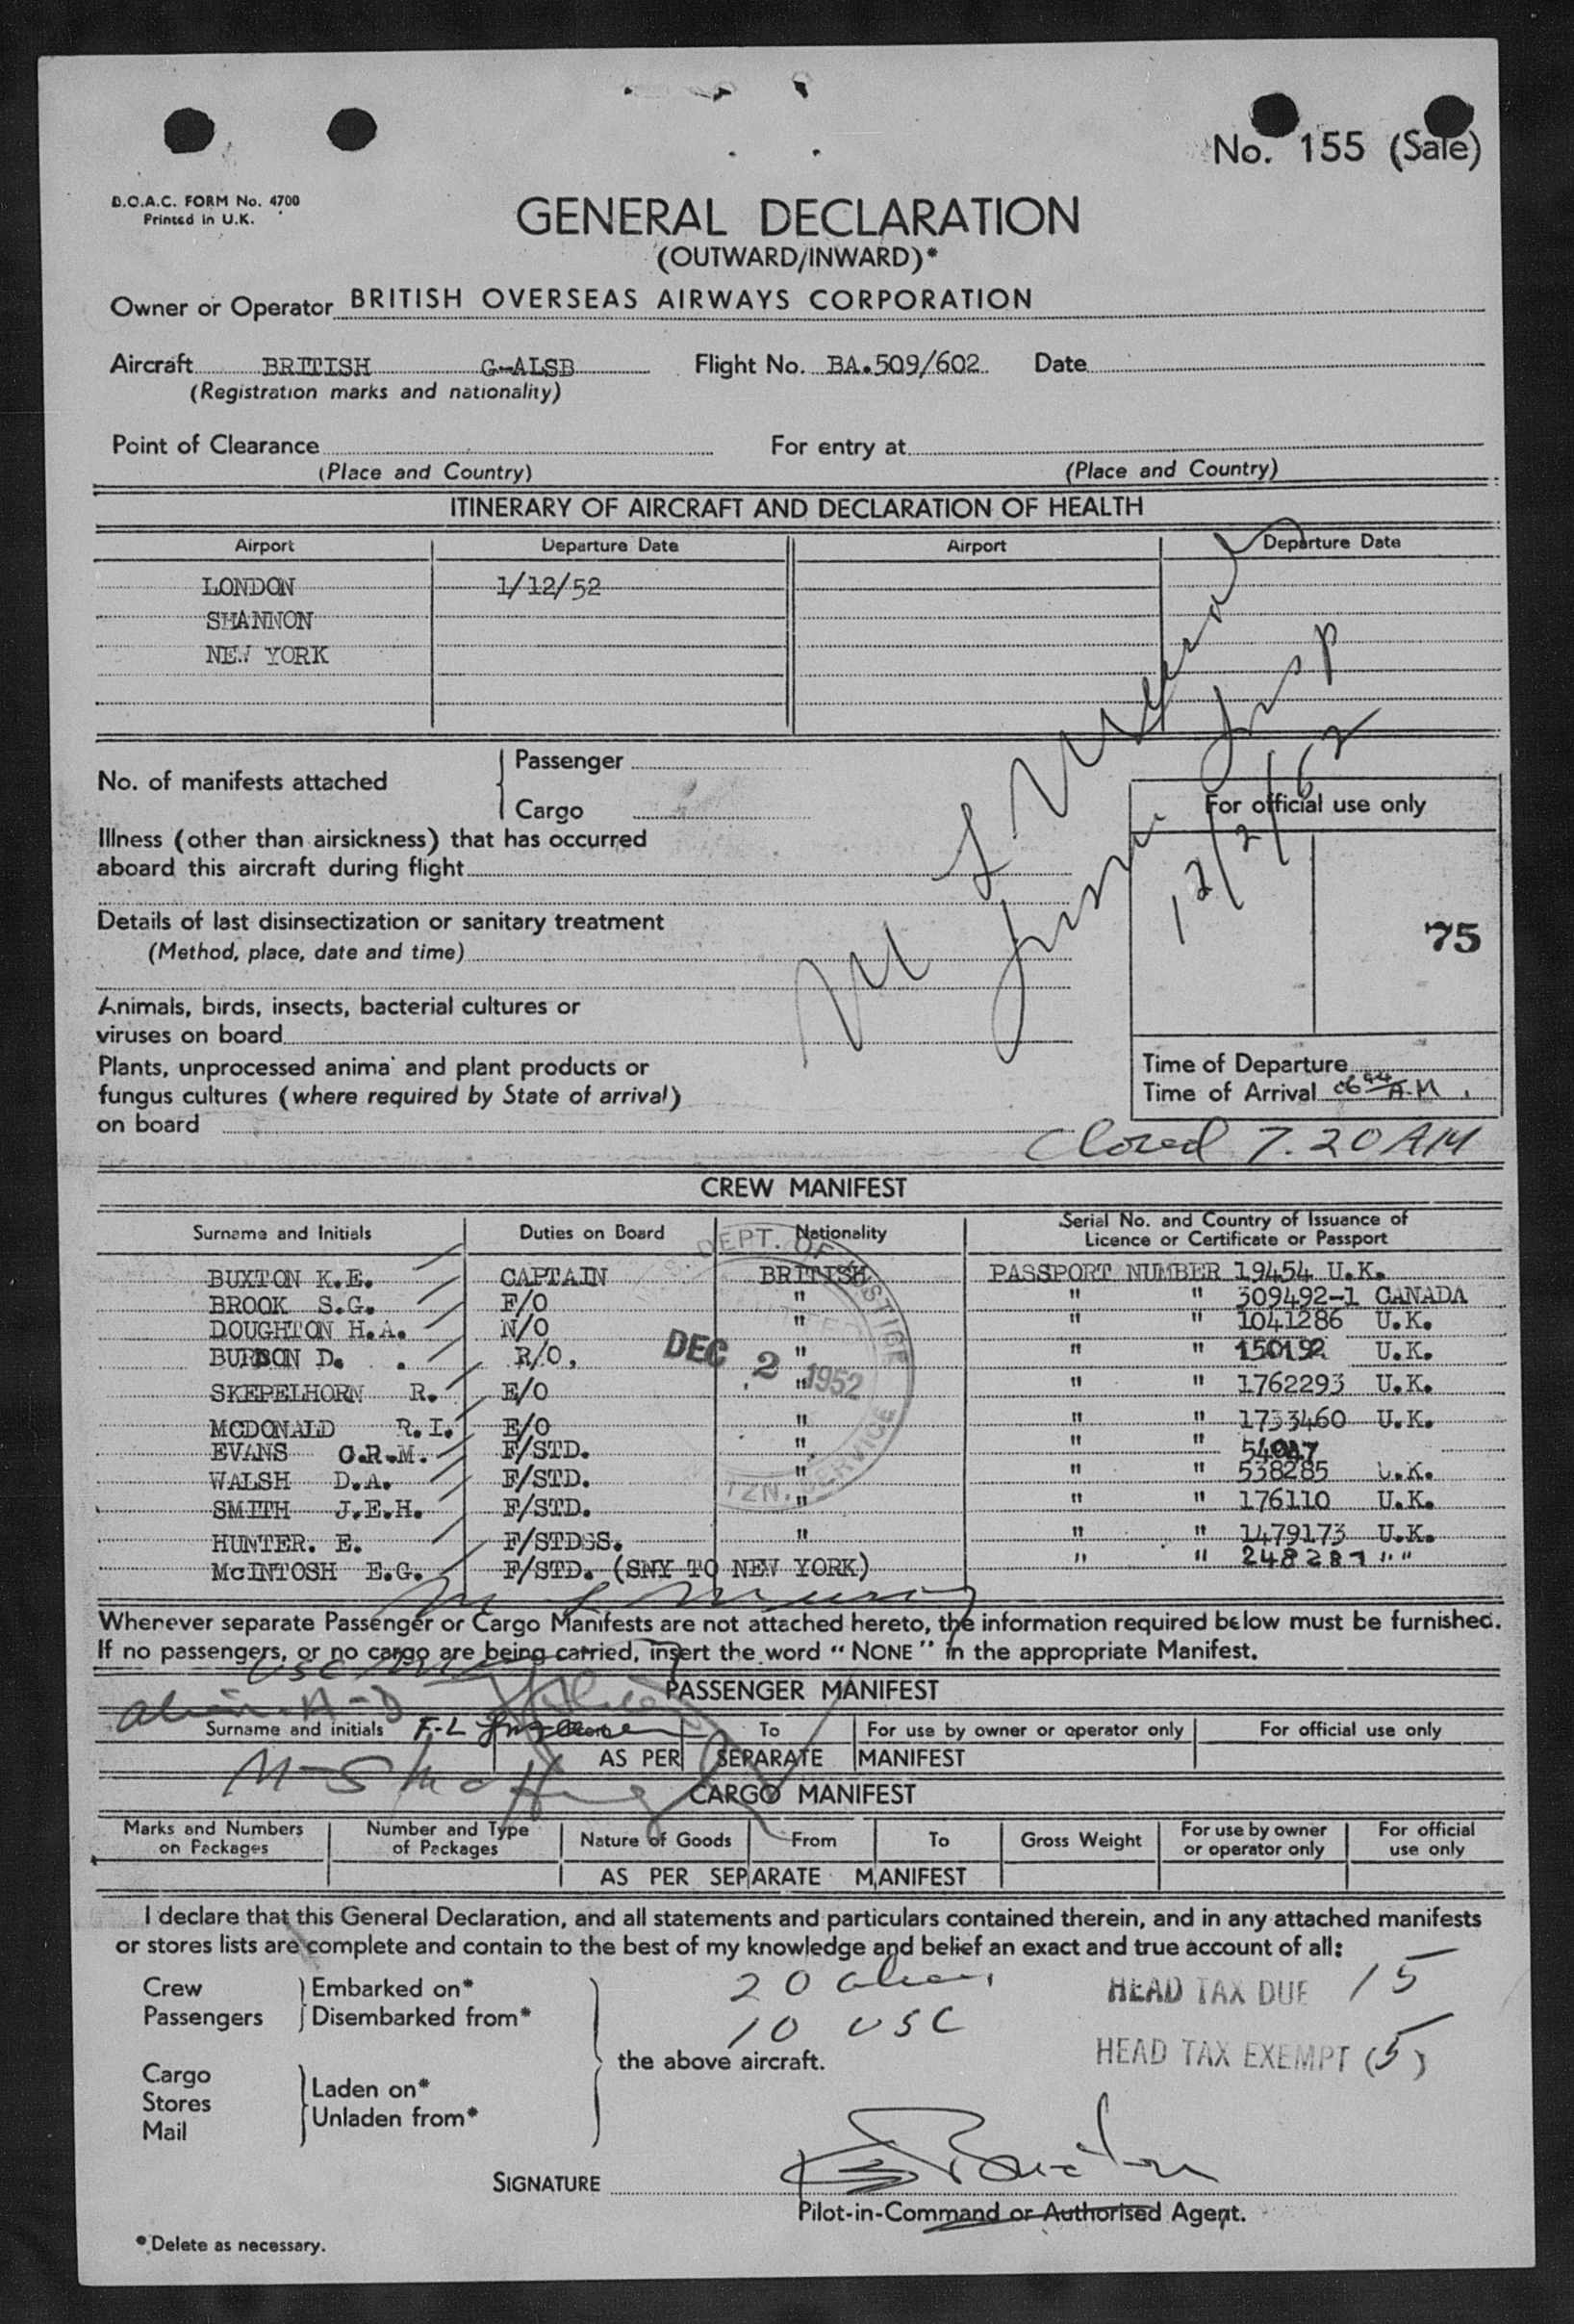 No. 155 (Sale)
B.O.A.C. FORM No. 4700
Printed in U.K.
GENERAL DECLARATION
(OUTWARD/INWARD)*
Owner or Operator BRITISH OVERSEAS AIRWAYS CORPORATION
Aircraft BRITISH G-ALSB Flight No. BA.509/602 Date
(Registration marks and nationality)
Point of Clearance For entry at
(Place and Country) (Place and Country)
ITINERARY OF AIRCRAFT AND DECLARATION OF HEALTH
Airport Departure Date Airport Departure Date
LONDON 1/12/52
SHANNON
NEW YORK
No. of manifests attached
Passenger
Cargo
Illness (other than airsickness) that has occurred
aboard this aircraft during flight
Details of last disinsectization or sanitary treatment
(Method, place, date and time)
Animals, birds, insects, bacterial cultures or
viruses on board
Plants, unprocessed anima' and plant products or
fungus cultures (where required by State of arrival)
on board
Insp
For official use only
75
Time of Departure
Time of Arrival A.M.
Closed 7.20 AM
CREW MANIFEST
Surname and Initials Duties on Board Nationality Serial No. and Country of Issuance of
Licence or Certificate or Passport
BUXTON K.E. CAPTAIN BRITISH PASSPORT NUMBER 19454 U.K.
BROOK S.G. F/O " " " 309492-1 CANADA
DOUGHTON H.A. N/O " " " 1041286 U.K.
D. R/O, " " " 150192 U.K.
SKEPELHORN R. E/O " " " 1762293 U.K.
MCDONALD R.I. E/O " " " 1733460 U.K.
EVANS O.R.M. F/STD. " " "
WALSH D.A. F/STD. " " " 538285 U.K.
SMITH J.E.H. F/STD. " " " 176110 U.K.
HUNTER. E. F/STDSS. " " " 1479173 U.K.
McINTOSH E.G. F/STD. (SNY TO NEW YORK) " " 248287 " "
U.S. DEPT. OF JUSTICE
DEC 2 1952
TZN. SERVICE
Whenever separate Passenger or Cargo Manifests are not attached hereto, the information required below must be furnished.
If no passengers, or no cargo are being carried, insert the word "NONE" in the appropriate Manifest.
PASSENGER MANIFEST
Surname and initials To For use by owner or operator only For official use only
AS PER SEPARATE MANIFEST
CARGO MANIFEST
Marks and Numbers on Packages Number and Type of Packages Nature of Goods From To Gross Weight For use by owner or operator only For official use only
AS PER SEPARATE MANIFEST
I declare that this General Declaration, and all statements and particulars contained therein, and in any attached manifests
or stores lists are complete and contain to the best of my knowledge and belief an exact and true account of all:
Crew Embarked on*
Passengers Disembarked from*
20
10 USC
HEAD TAX DUE 15
HEAD TAX EXEMPT (5)
the above aircraft.
Cargo
Stores
Mail
Laden on*
Unladen from*
SIGNATURE Buxton
Pilot-in-Command or Authorised Agent.
* Delete as necessary.